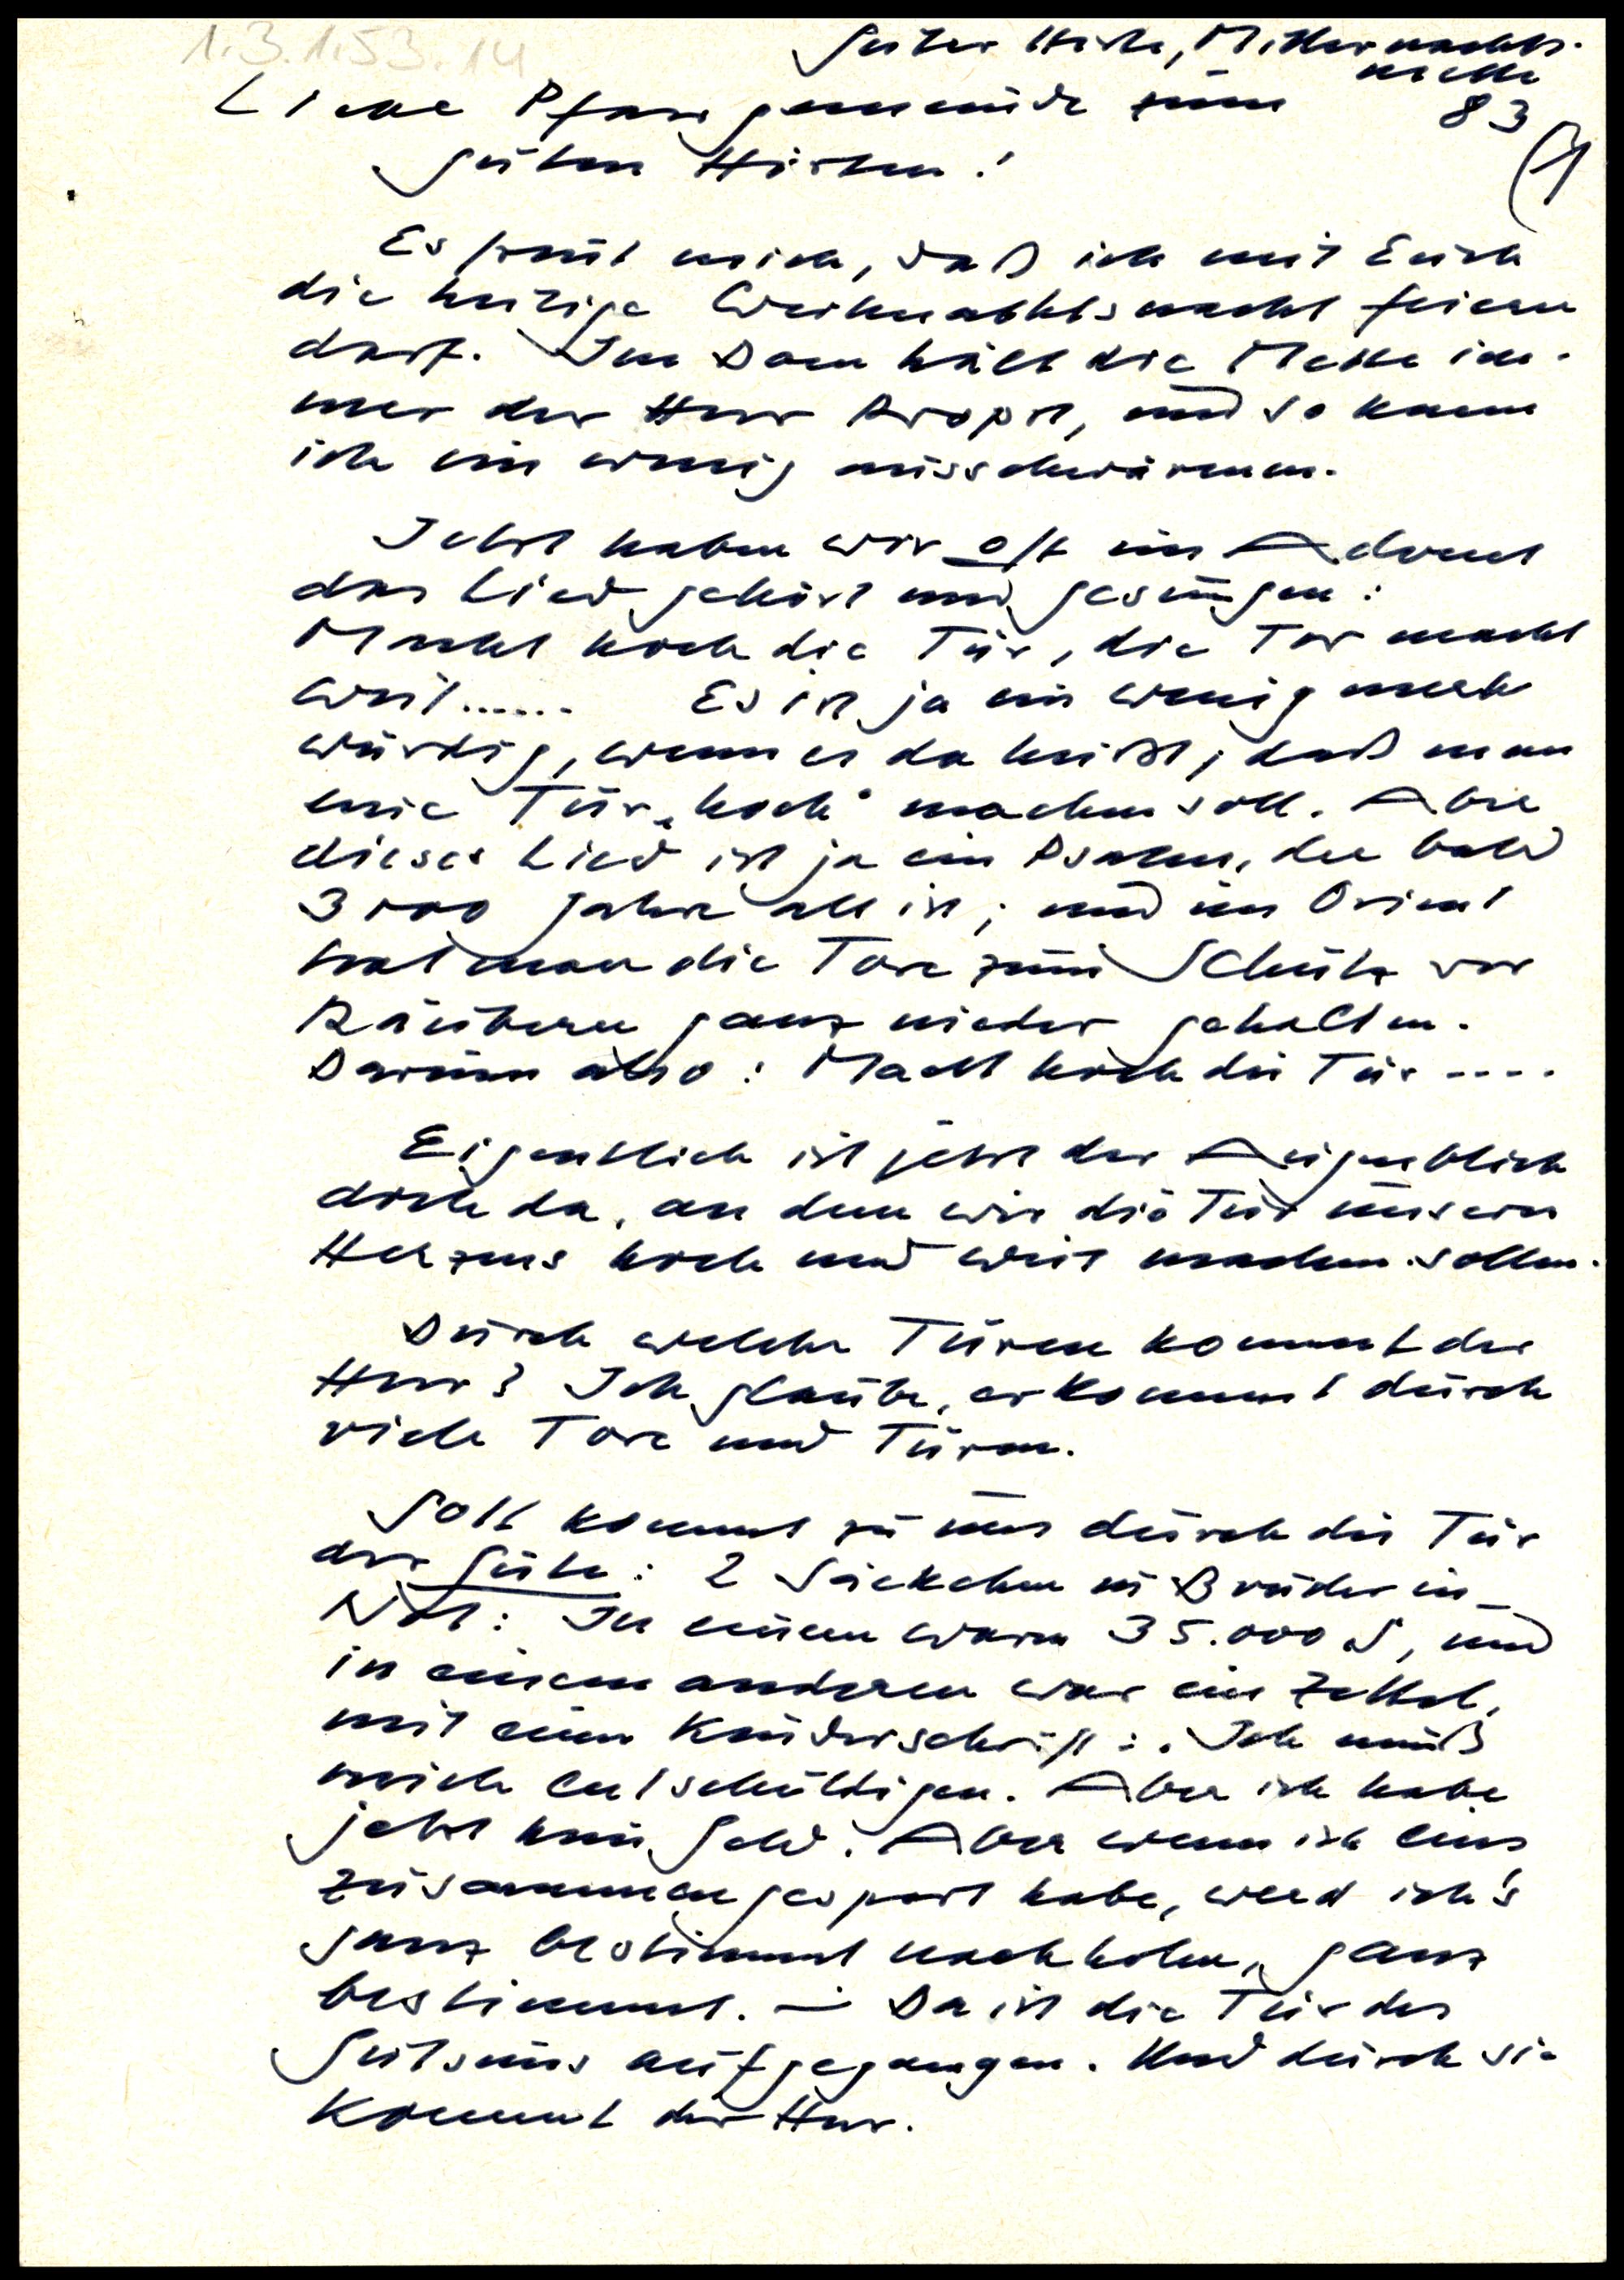 1.3.1.53.14
Guter Hirte, Mitternachts-
mette
83
(1
Liebe Pfarrgemeinde zum
guten Hirten!
Es freut mich, daß ich mit Euch
die heurige Weihnachtsnacht feiern
darf. Im Dom hält die Mette im-
mer der Herr Propst, und so kann
ich ein wenig ausschwärmen.
Jetzt haben wir oft im Advent
das Lied gehört und gesungen:
Macht hoch die Tür, die Tor macht
weit...... Es ist ja ein wenig merk
würdig, wenn es da heißt, daß man
eine Tür „hoch" machen soll. Aber
dieses Lied ist ja ein Psalm, der bald
3000 Jahre alt ist; und im Orient
hat man die Tore zum Schutz vor
Räubern ganz nieder gehalten.
Darum also: Macht hoch die Tür ----
Eigentlich ist jetzt der Augenblick
doch da, an dem wir die Tür unseres
Herzens hoch und weit machen sollen.
Durch welche Türen kommt der
Herr? Ich glaube, er kommt durch
viele Tore und Türen.
Gott kommt zu uns durch die Tür
der Güte: 2 Säckchen in Bruder in
Not: In einem waren 35.000 S, und
in einem anderen war ein Zettel,
mit einer Kinderschrift: Ich muß
mich entschuldigen. Aber ich habe
jetzt kein Geld. Aber wenn ich eins
zusammengespart habe, werd ich's
ganz bestimmt nachholen, ganz
bestimmt. — Da ist die Tür des
Gutseins aufgegangen. Und durch sie
kommt der Herr.